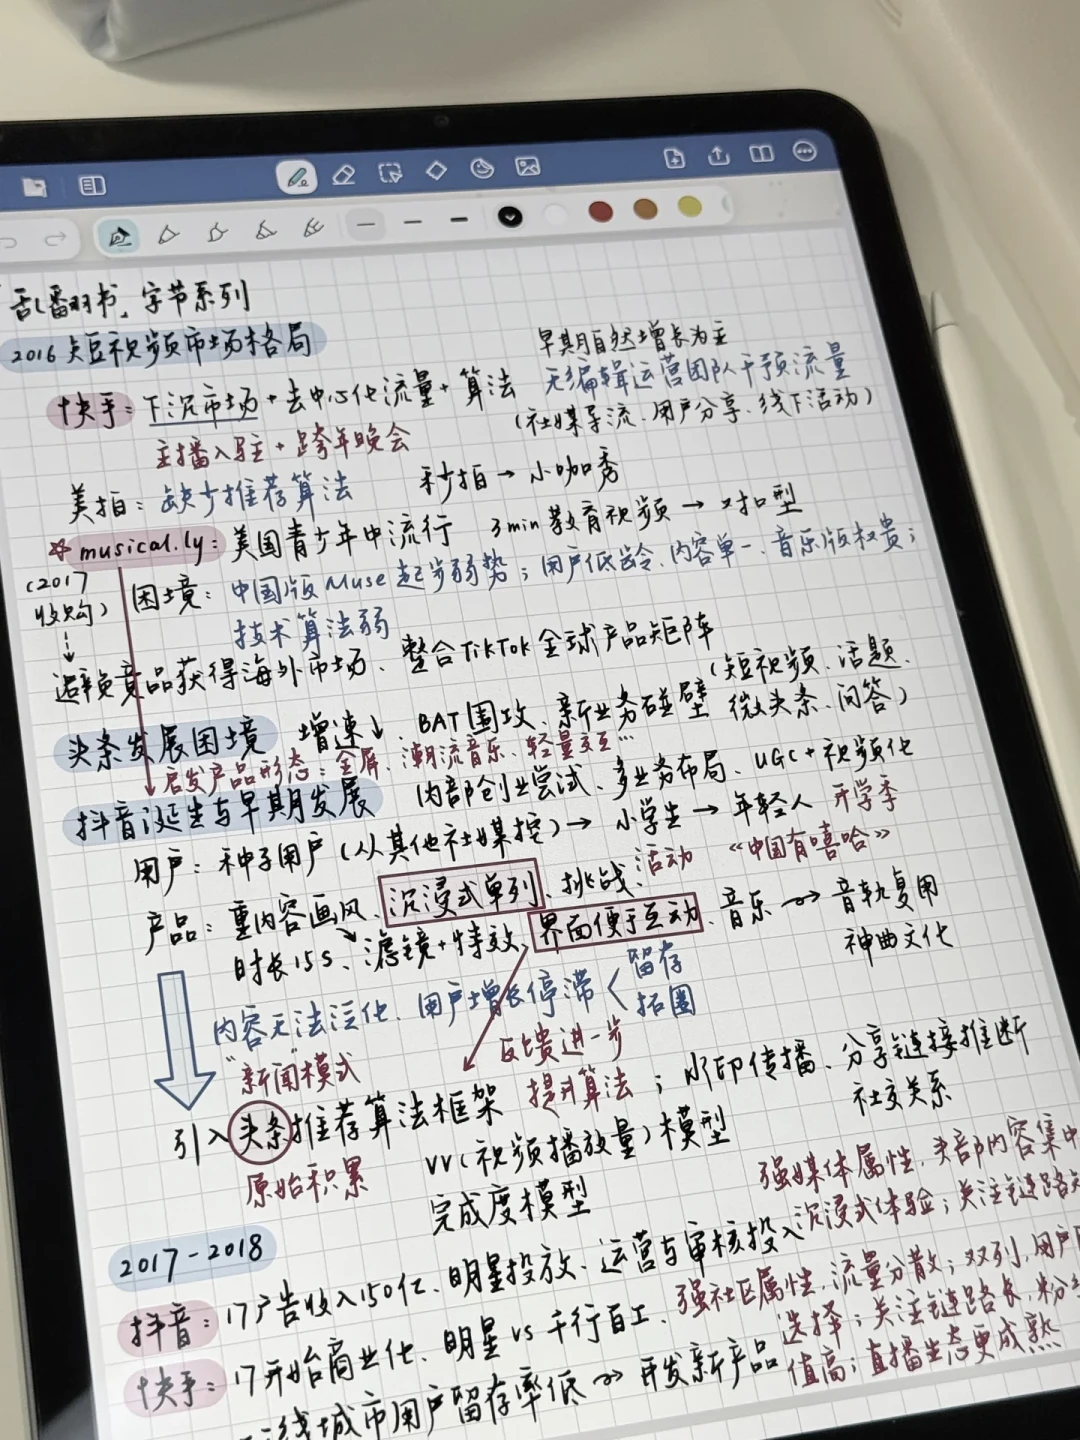 「乱翻书」字节系列
2016短视频市场格局
早期自然增长为主
快手：下沉市场+去中心化流量+算法
无编辑运营团队干预流量
（社媒导流、用户分享、线下活动）
主播入驻+跨年晚会
美拍：缺少推荐算法
秒拍→小咖秀
☆musical.ly：美国青少年中流行 3min教育视频→对扣型
（2017收购）
困境：中国版Muse起步弱势；用户低龄、内容单一、音乐版权贵；
技术算法弱
避免竞品获得海外市场、整合TikTok全球产品矩阵
头条发展困境 增速↓、BAT围攻、新业务碰壁（短视频、话题、
微头条、问答）
启发产品形态：全屏、潮流音乐、轻量交互…
抖音诞生与早期发展 内部创业尝试、多业务布局、UGC+视频化
用户：种子用户（从其他社媒挖）→小学生→年轻人 开学季
产品：重内容画风、沉浸式单列、挑战、活动《中国有嘻哈》
时长15s、滤镜+特效、界面便于互动、音乐→音轨复用
神曲文化
内容无法泛化、用户增长停滞<留存
拓圈
"新闻"模式
反馈进一步
提升算法
引入头条推荐算法框架；水印传播、分享链接推断
社交关系
原始积累
VV（视频播放量）模型
完成度模型
2017-2018
强媒体属性，头部内容集中
沉浸式体验；关注链路短
抖音：17广告收入150亿、明星投放、运营与审核投入
强社区属性，流量分散；双列，用户
选择；关注链路长，粉
值高；直播生态更成熟
快手：17开始商业化、明星vs千行百工、
线城市用户留存率低→开发新产品